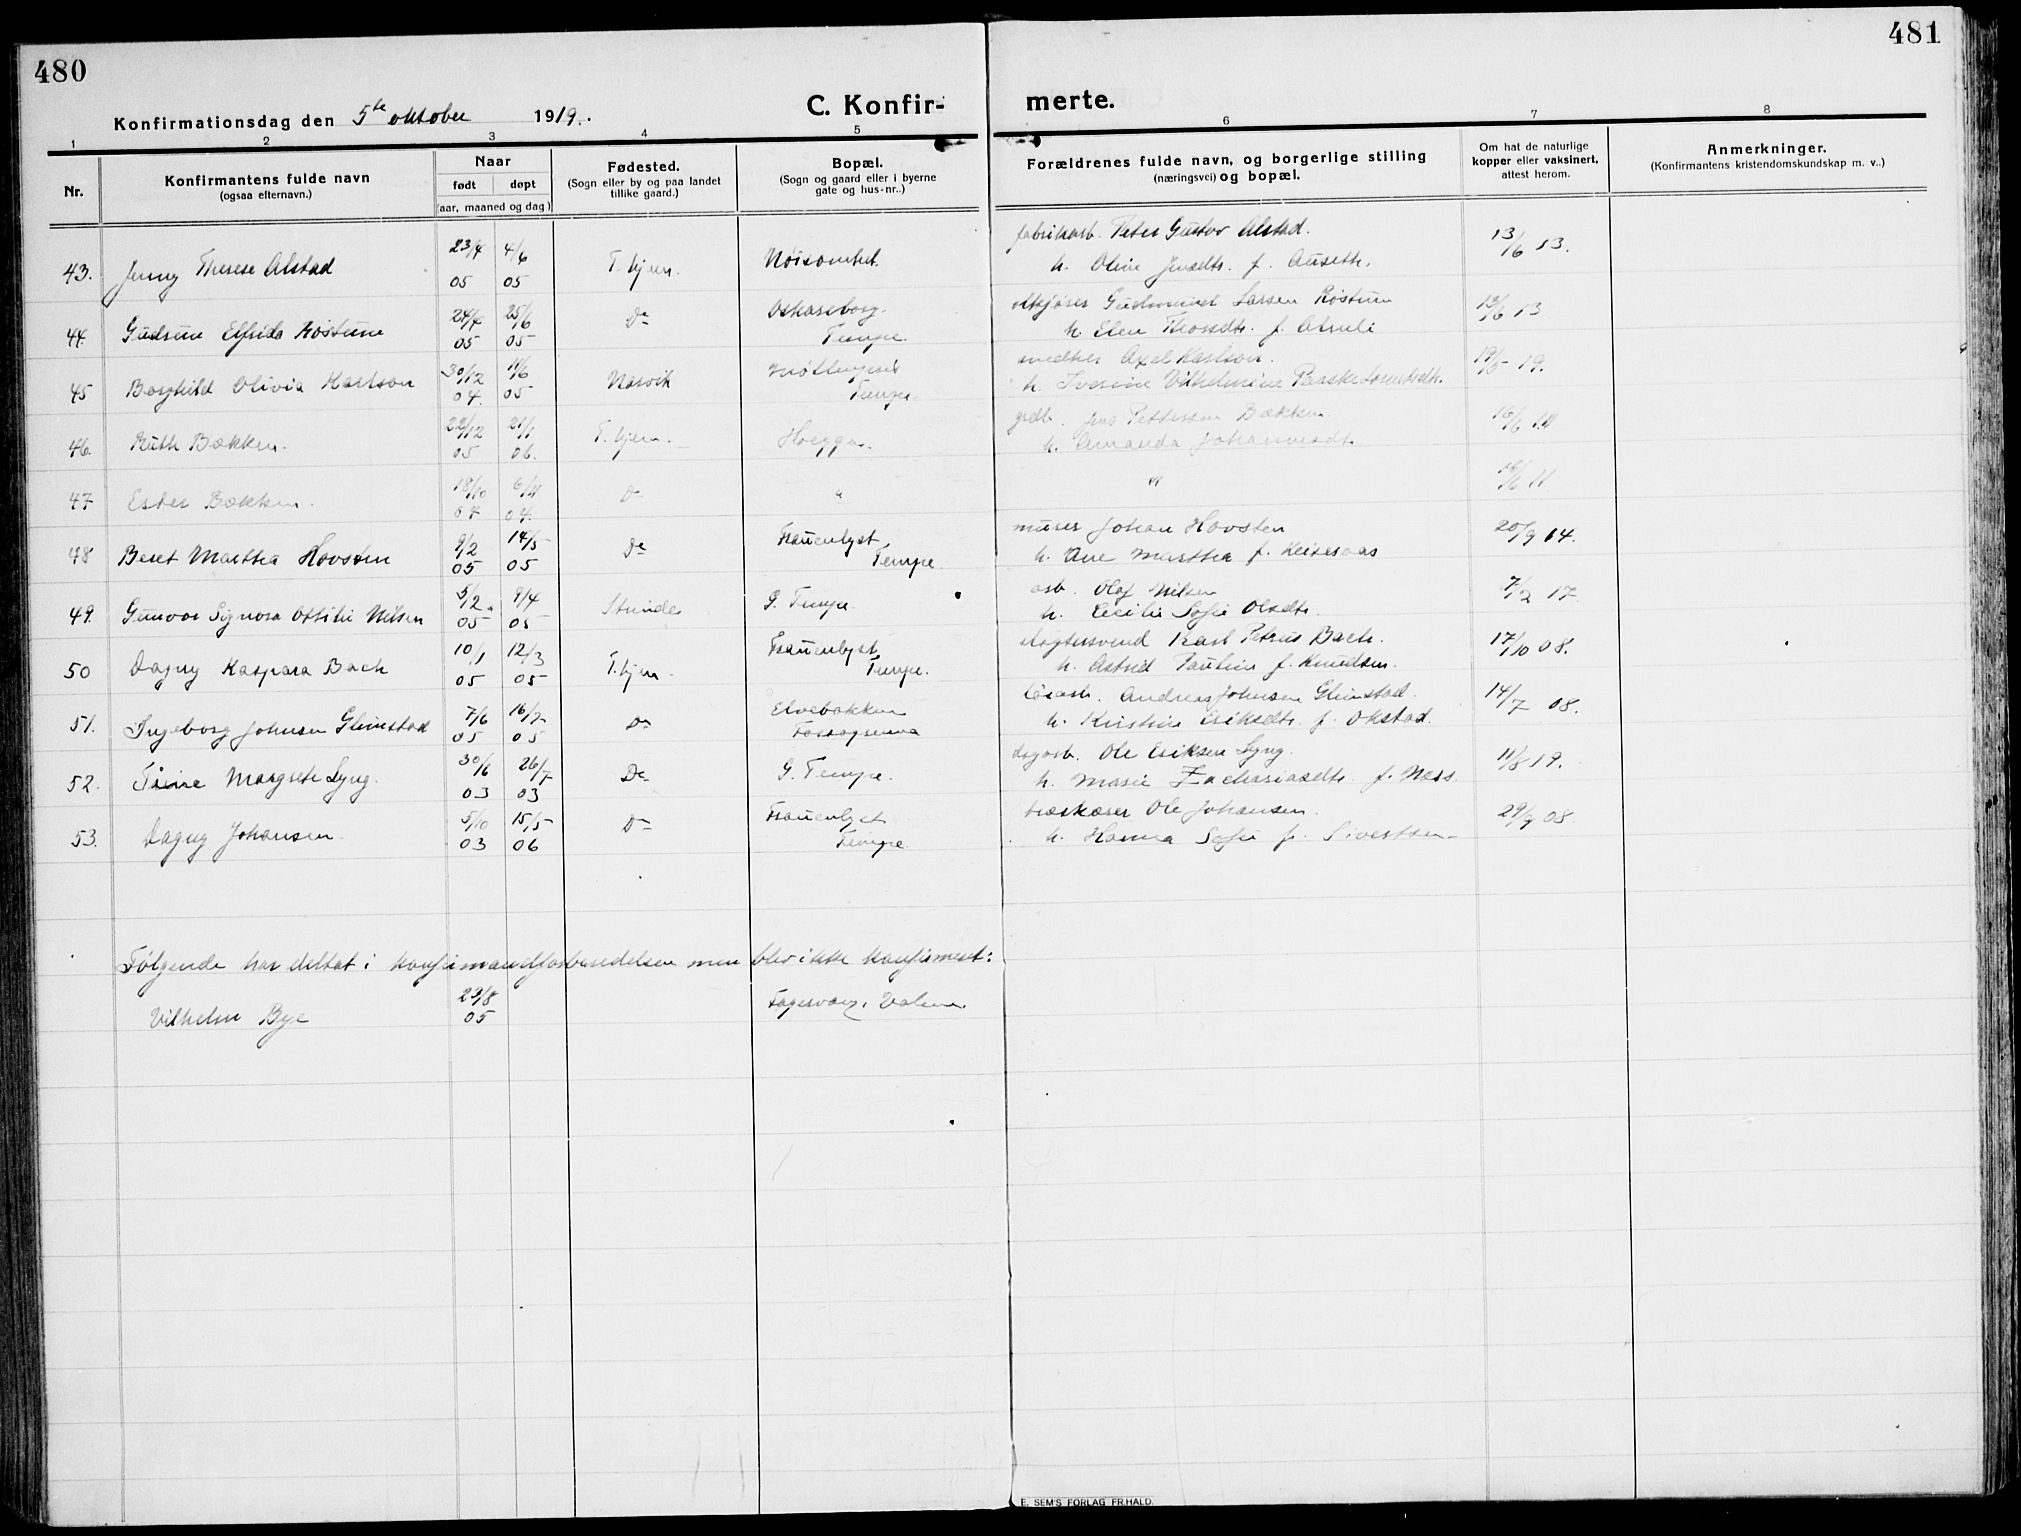 480
481
Konfirmationsdag den 5te oktober 1919.
C. Konfir-
merte.
1 2 3 4 5 6 7 8
Nr.
Konfirmantens fulde navn
(ogsaa efternavn.)
Naar
født døpt
(aar, maaned og dag)
Fødested.
(Sogn eller by og paa landet
tillike gaard.)
Bopæl.
(Sogn og gaard eller i byerne
gate og hus-nr..)
Forældrenes fulde navn, og borgerlige stilling
(næringsvei) og bopæl.
Om hat de naturlige
kopper eller vaksinert,
attest herom.
Anmerkninger.
(Konfirmantens kristendomskundskap m. v..)
fabrikarb. Peter Gustav Alstad.
43. Jenny Therese Alstad 23/4 05 4/6 05 T.hjem. Nøisomhet. 13/6 13.
h. Oline Jensdtr. f. Auseth.
Gudmund Larsen Røstum
44. Gudrun Elfrida Røstum 24/4 05 25/6 05 Do Oskarsborg. Tempe. 13/6 13
h. Elen Thorsdtr. f.
Axel Karlson.
45 Borghild Olivia Karlson 30/12 04. 11/6 05 Narvik Tempe. 19/5 19.
h. Iverine Vilhelmine
grdb. Jens Pettersen Bækken.
46. Ruth Bækken. 22/12 05 21/1 06. T.hjem. Hoeggen. 16/6
h. Amanda Johannesdt.
47 Ester Bækken. 18/10 04 6/11 04. Do " " 16/6 11
murer Johan Hovsten
48 Beret Marthea Hovsten 9/2 05 14/5 05 Do Frauenlyst Tempe. 20/9 14.
h. Ane Marthea f. Keiseraas
arb. Olaf Nilsen
49. Gunvor Signora Ottilie Nilsen 5/2 05 9/4 05 Strinde G. Tempe. 7/2 17
h. Cecilie Sofie Olsdtr.
slagtersvend Karl Petrus Bach.
50 Dagny Kaspara Bach 10/1 05 12/3 05 T.hjem. Frauenlyst Tempe. 17/10 08.
h. Astrid Pauline f. Knudsen.
løsarb. Andreas Johnsen Glimstad.
51. Ingeborg Johnsen Glimstad 7/6 05 16/7 05 Do Elvebakken 14/7 08.
h. Kristine Eriksdtr. f. Okstad.
dagarb. Ole Eriksen Lyng.
52. Tine Margrete Lyng. 30/6 03 26/7 03 Do G. Tempe. 11/8 19.
h. Marie Zachariasdtr. f. Næss.
Ole Johansen.
53. Dagny Johansen. 5/10 03 15/5 06 Do Frauenlyst Tempe 29/9 08.
h. Hanna Sofie f. Sivertsen
Følgende har deltat i konfirmandforberedelsen men blev ikke konfirmert:
Vilhelm Bye 29/8 05
E. SEM'S FORLAG FR.HALD.